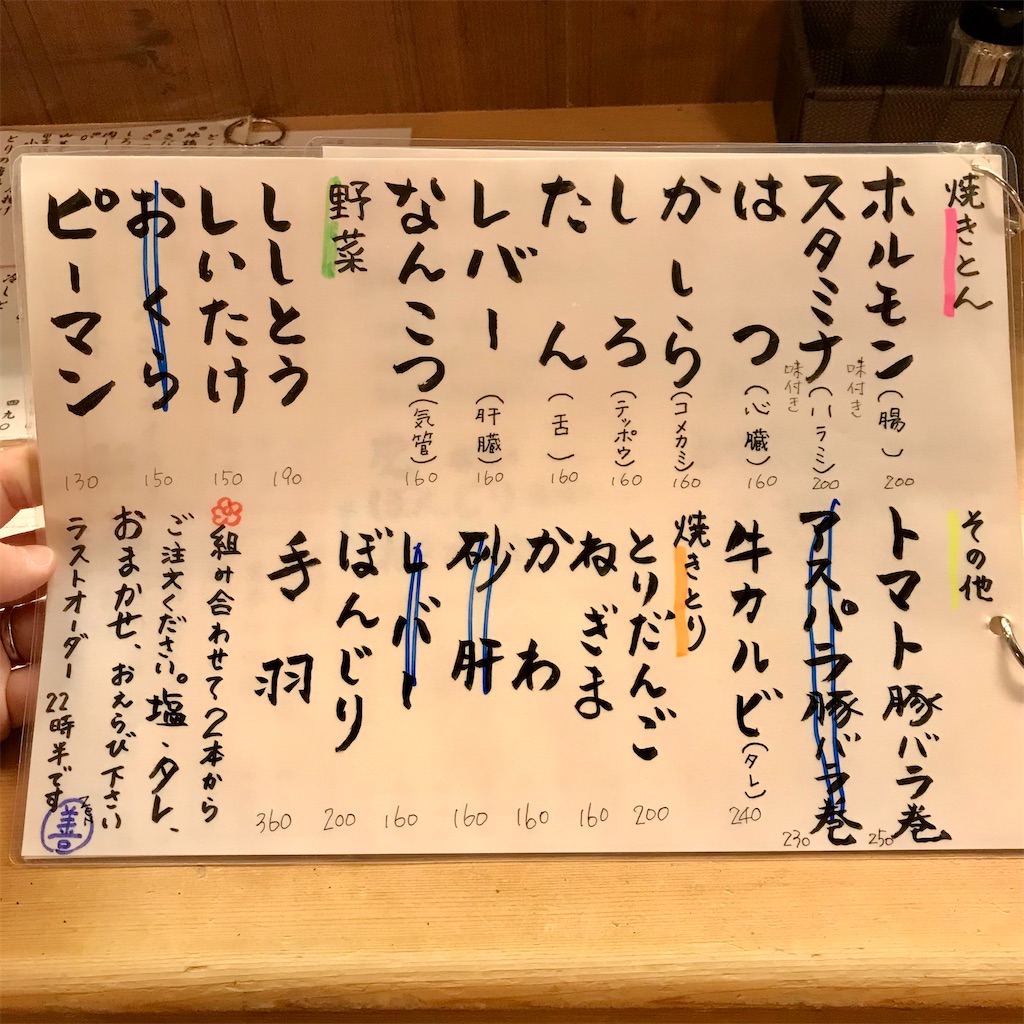 焼きとん
ホルモン(腸) 味付き 200
スタミナ(ハラミ) 味付き 200
はつ(心臓) 160
かしら(コメカミ) 160
しろ(テッポウ) 160
たん(舌) 160
レバー(肝臓) 160
なんこつ(気管) 160
野菜
ししとう 190
しいたけ 150
おくら 150
ピーマン 130
その他
トマト豚バラ巻 250
アスパラ豚バラ巻 230
牛カルビ(タレ) 240
焼きとり
とりだんご 200
ねぎま 160
かわ 160
砂肝 160
レバー 160
ぼんじり 200
手羽 360
組み合わせて2本から
ご注文ください。塩・タレ、
おまかせ、おえらび下さい
ラストオーダー 22時半です
善